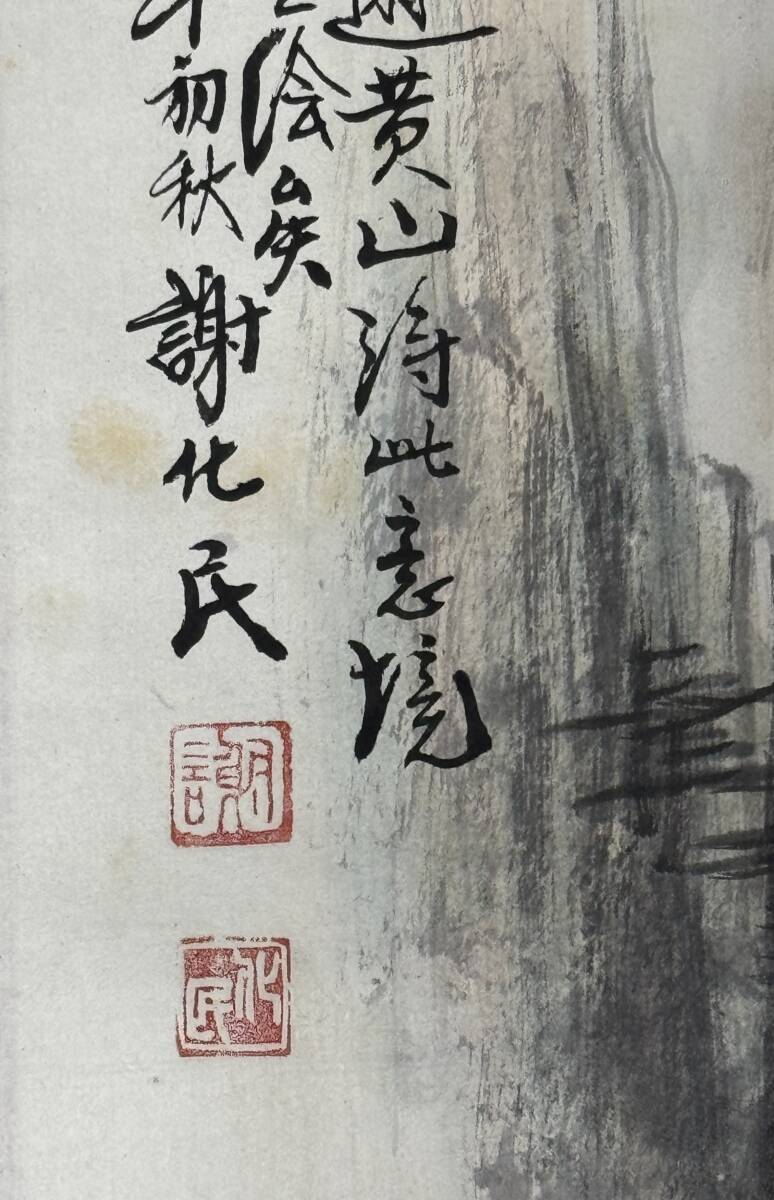 遊黄山得此意境
绘矣
初秋謝化民
謝
化民